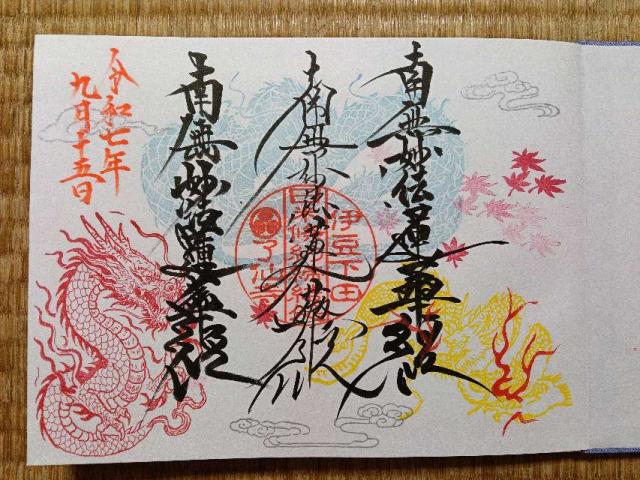 南無妙法蓮華経
南無妙法蓮華経
伊豆下田
南無妙法蓮華経
令和七年
九月十五日